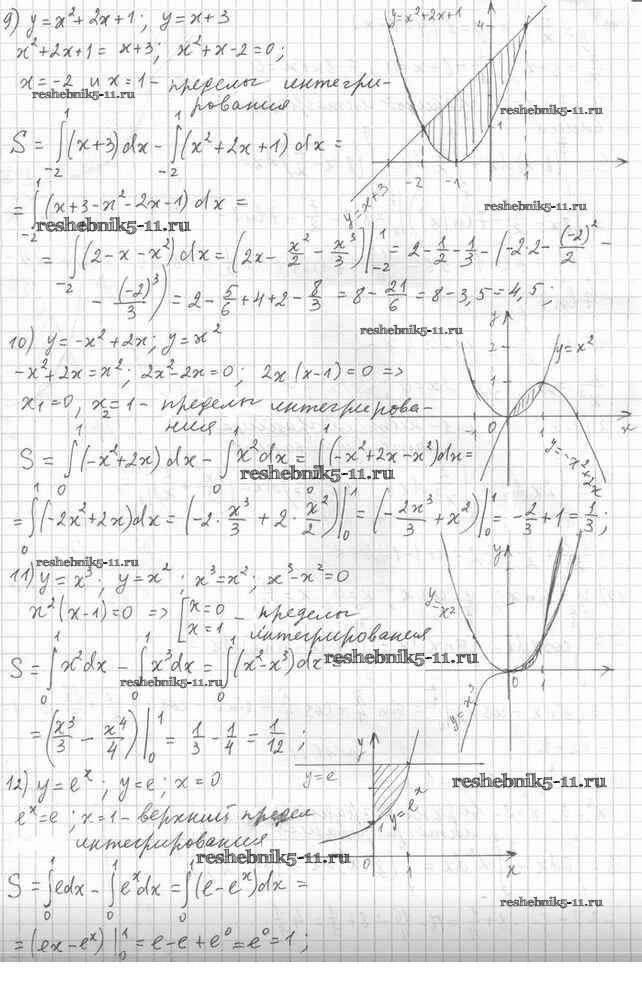 9) y = x² + 2x + 1; y = x + 3
x² + 2x + 1 = x + 3; x² + x − 2 = 0;
x = −2 и x = 1 – пределы интегри-
reshebnik5-11.ru
рования
S = ∫₋₂¹ (x+3) dx − ∫₋₂¹ (x² + 2x + 1) dx =
= ∫₋₂¹ (x + 3 − x² − 2x − 1) dx =
reshebnik5-11.ru
= ∫₋₂¹ (2 − x − x²) dx = (2x − x²/2 − x³/3) |₋₂¹ = 2 − 1/2 − 1/3 − (−2·2 − (−2)²/2 −
− (−2)³/3) = 2 − 5/6 + 4 + 2 − 8/3 = 8 − 21/6 = 8 − 3,5 = 4,5;
y = x² + 2x + 1
4
1
reshebnik5-11.ru
y = x + 3
−2 −1 1
reshebnik5-11.ru
reshebnik5-11.ru
10) y = −x² + 2x; y = x²
−x² + 2x = x²; 2x² − 2x = 0; 2x (x−1) = 0 =>
x₁ = 0, x₂ = 1 – пределы интегрирова-
ния
S = ∫₀¹ (−x² + 2x) dx − ∫₀¹ x² dx = ∫₀¹ (−x² + 2x − x²) dx =
reshebnik5-11.ru
= ∫₀¹ (−2x² + 2x) dx = (−2 · x³/3 + 2 · x²/2) |₀¹ = (−2x³/3 + x²) |₀¹ = −2/3 + 1 = 1/3;
y
2
1
y = x²
−1 0 1 x
y = −x² + 2x
reshebnik5-11.ru
11) y = x³; y = x²; x³ = x²; x³ − x² = 0
x² (x−1) = 0 => [x = 0 x = 1 – пределы
интегрирования
S = ∫₀¹ x² dx − ∫₀¹ x³ dx = ∫₀¹ (x² − x³) dx
reshebnik5-11.ru
reshebnik5-11.ru
= (x³/3 − x⁴/4) |₀¹ = 1/3 − 1/4 = 1/12;
y
y = x²
0 1
y = x³
12) y = eˣ; y = e; x = 0
eˣ = e; x = 1 – верхний предел
интегрирования
reshebnik5-11.ru
S = ∫₀¹ e dx − ∫₀¹ eˣ dx = ∫₀¹ (e − eˣ) dx =
= (ex − eˣ) |₀¹ = e − e + e⁰ = e⁰ = 1;
y
y = e
1
y = eˣ
0 1 x
reshebnik5-11.ru
reshebnik5-11.ru